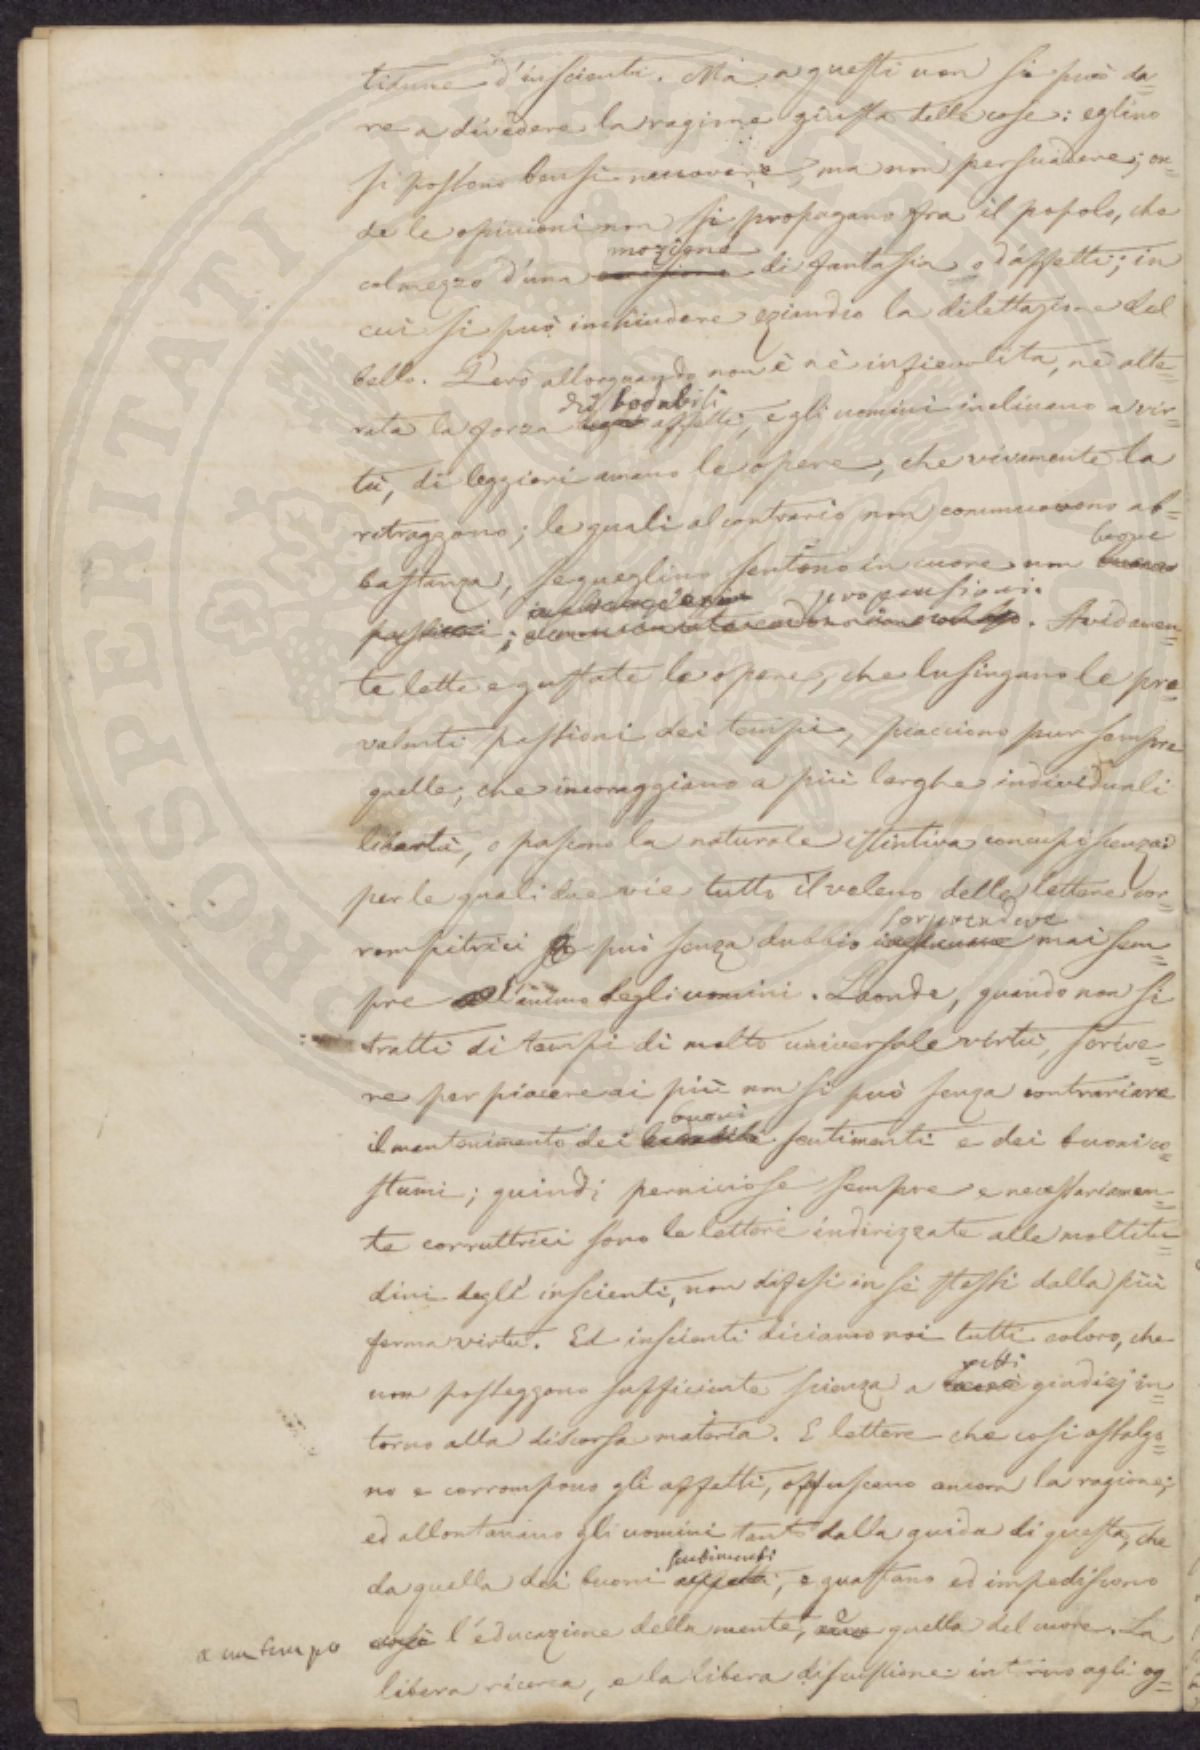 titudine d'inscienti. Ma a questi non si può da=
re a divedere la ragione giusta delle cose: eglino
si possono bensì muovere, ma non persuadere; on=
de le opinioni non si propagano fra il popolo, che
mozione
col mezzo d'una di fantasia o d'affetti; in
cui si può inchiudere eziandio la dilettazione del
bello. Però allorquando non è nè infievolita, nè alte=
di lodabili
rata la forza affetti, e gli uomini inclinano a vir=
tù, di leggieri amano le opere, che vivamente la
ritraggono; le quali al contrario non commuovono ab=
bastanza, se queglino sentono in cuore non
propensioni.
Avidamen=
te lette e gustate le opere, che lusingano le pre=
valenti passioni dei tempi, piacciono pur sempre
quelle, che incoraggiano a più larghe individuali
libertà, o pascono la naturale istintiva concupiscenza:
per le quali due vie tutto il veleno delle lettere cor=
sorprendere
rompitrici può senza dubbio mai sem=
pre l'animo degli uomini. Laonde, quando non si
tratti di tempi di molto universale virtù, scrive=
re per piacere ai più non si può senza contrariare
buoni
il mantenimento dei sentimenti e dei buoni co=
stumi; quindi perniciose sempre e necessariamen=
te corruttrici sono le lettere indirizzate alle moltitu=
dini degl'inscienti, non difesi in sè stessi dalla più
ferma virtù. Ed inscienti diciamo noi tutti coloro, che
retti
non posseggono sufficiente scienza a giudizj in=
torno alla discorsa materia. E lettere che così assalgo=
no e corrompono gli affetti, offuscano ancora la ragione;
ed allontanano gli uomini tanto dalla guida di questa, che
sentimenti
da quella dei buoni affetti, e guastano ed impediscono
a un tempo così l'educazione della mente, e quella del cuore. La
libera ricerca, e la libera discussione intorno agli og=
PROSPERITATI PUBLICAE